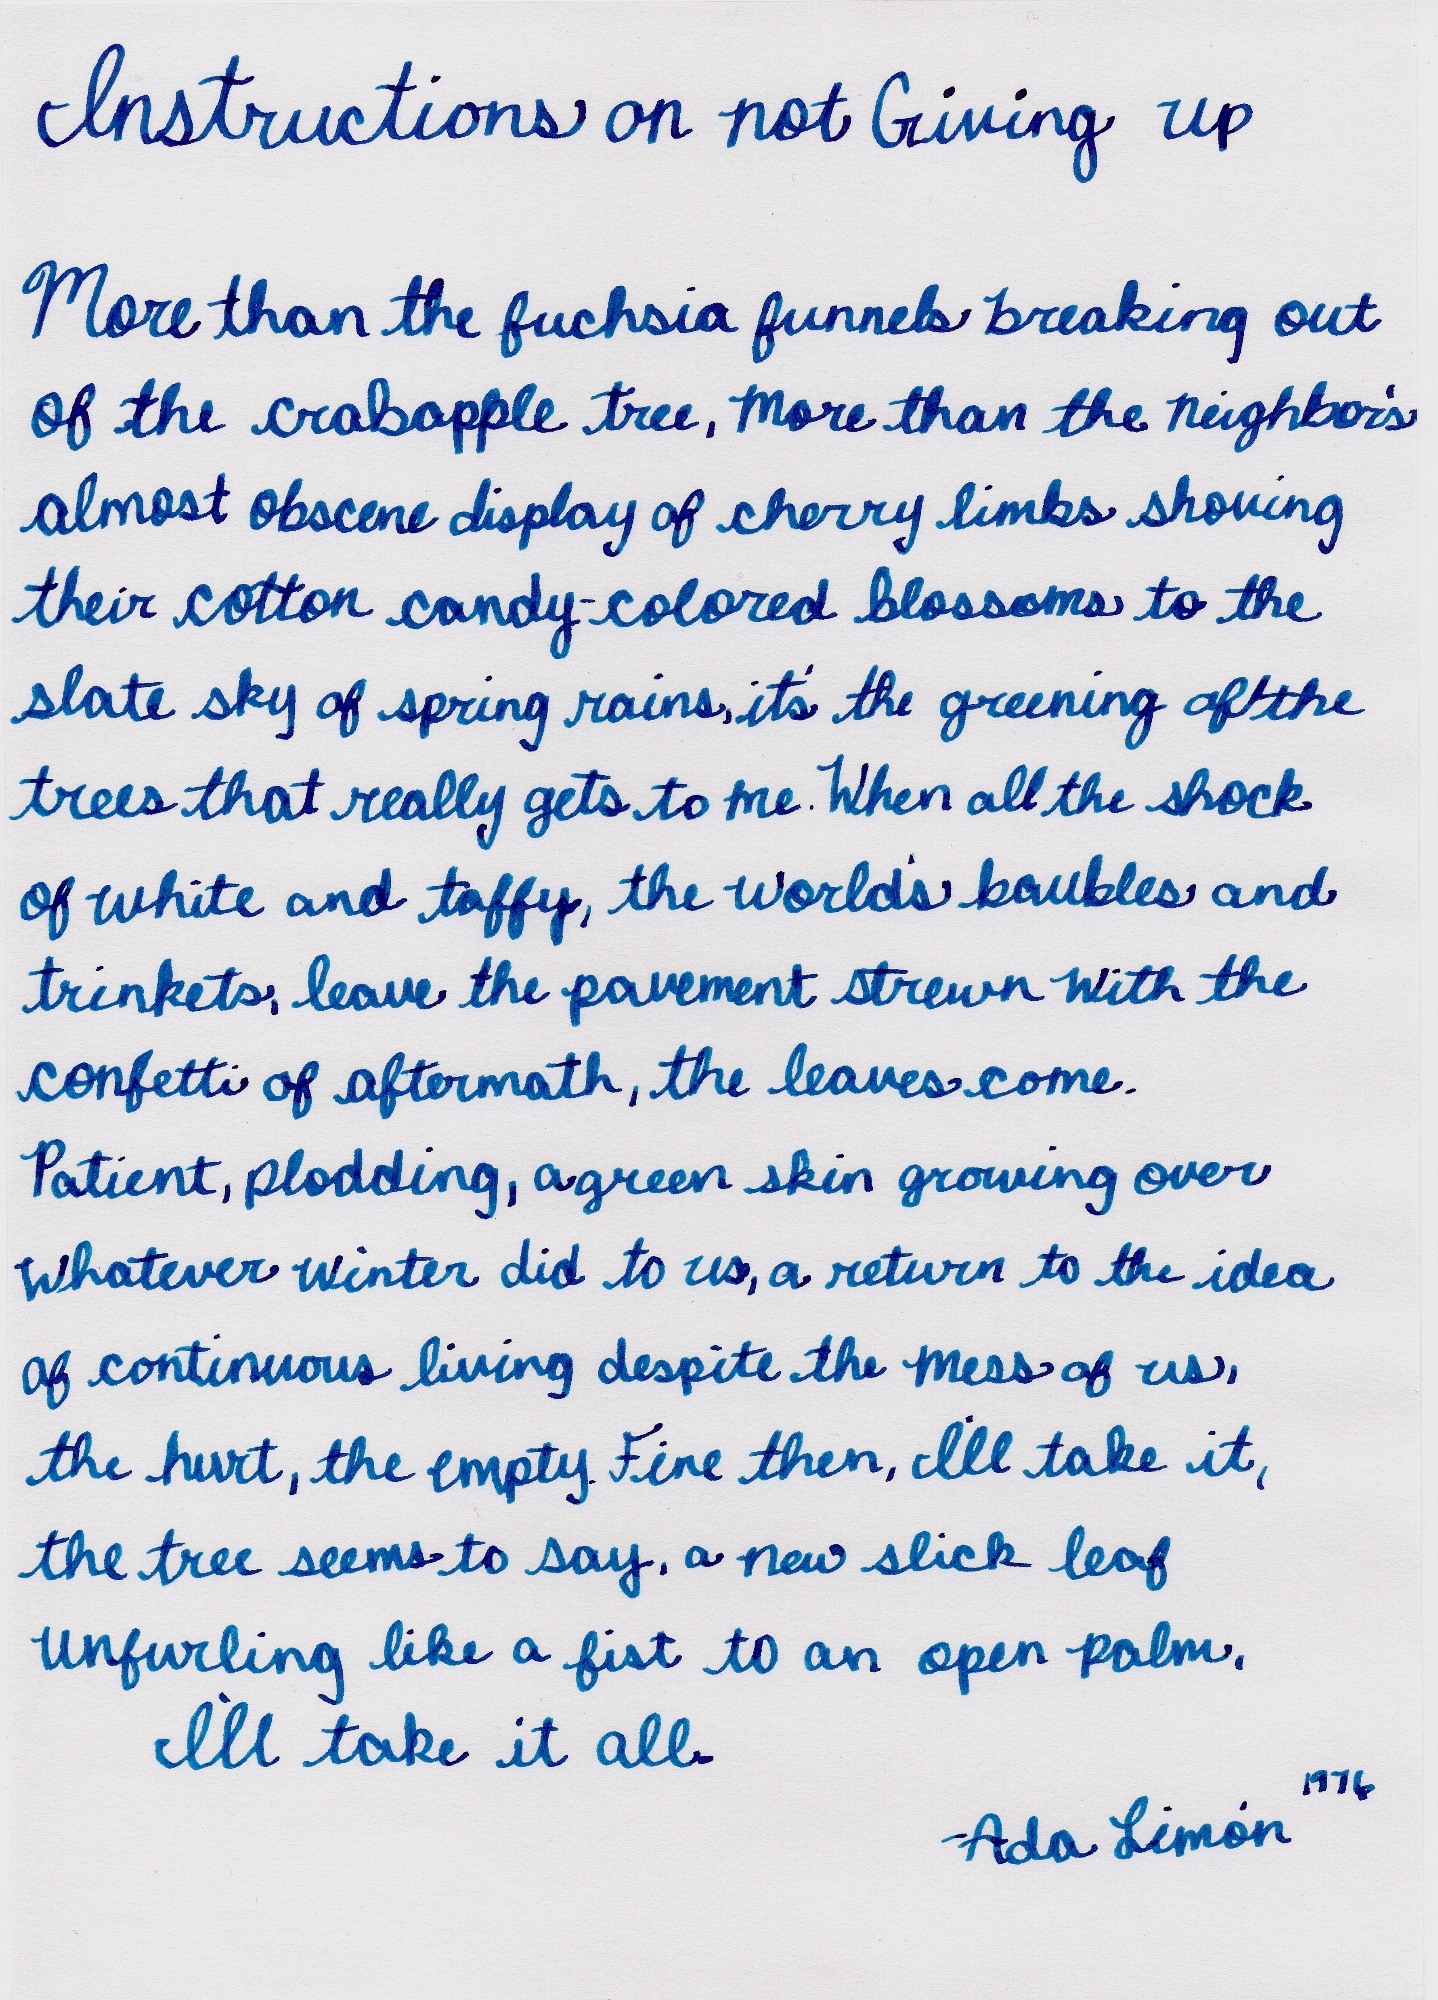 Instructions on not Giving up
More than the fuchsia funnels breaking out
of the crabapple tree, more than the neighbor's
almost obscene display of cherry limbs shoving
their cotton candy-colored blossoms to the
slate sky of spring rains, it's the greening of the
trees that really gets to me. When all the shock
of white and taffy, the world's baubles and
trinkets, leave the pavement strewn with the
confetti of aftermath, the leaves come.
Patient, plodding, a green skin growing over
whatever winter did to us, a return to the idea
of continuous living despite the mess of us,
the hurt, the empty. Fine then, I'll take it,
the tree seems to say, a new slick leaf
unfurling like a fist to an open palm,
I'll take it all.
-Ada Limón 1976